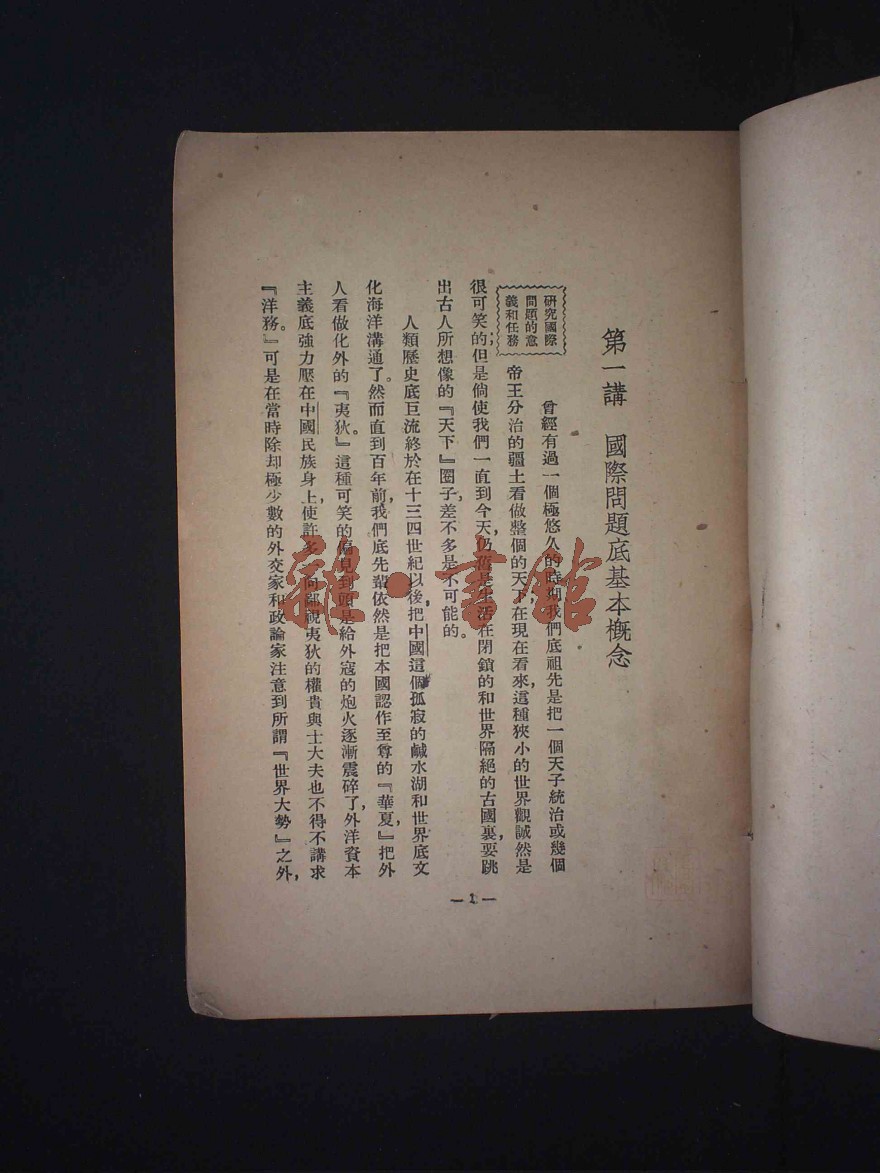 第一講　國際問題底基本概念
研究國際
問題的意
義和任務
曾經有過一個極悠久的時期，我們底祖先是把一個天子統治或幾個
帝王分治的疆土看做整個的天下；在現在看來，這種狹小的世界觀誠然是
很可笑的；但是倘使我們一直到今天，仍舊是生活在閉鎖的和世界隔絕的古國裏，要跳
出古人所想像的『天下』圈子，差不多是不可能的。
人類歷史底巨流終於在十三四世紀以後，把中國這個孤寂的鹹水湖和世界底文
化海洋溝通了。然而直到百年前，我們底先輩依然是把本國認作至尊的『華夏』，把外
人看做化外的『夷狄。』這種可笑的偏見到頭是給外寇的炮火逐漸震碎了，外洋資本
主義底強力壓在中國民族身上，使許多一向鄙視夷狄的權貴與士大夫也不得不講求
『洋務。』可是在當時除却極少數的外交家和政論家注意到所謂『世界大勢』之外，
—1—
雜·書館